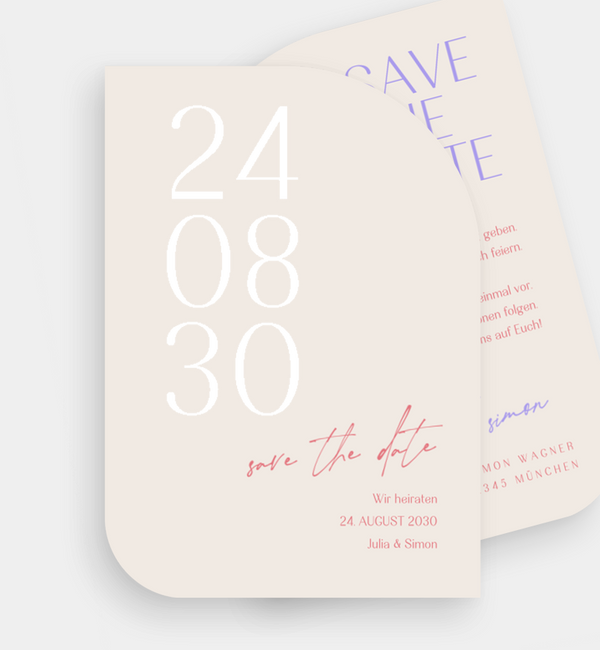 24
08
30
save the date
Wir heiraten
24. AUGUST 2030
Julia & Simon
SAVE
TE
geben.
feiern.
einmal vor.
folgen.
auf Euch!
simon
WAGNER
MÜNCHEN